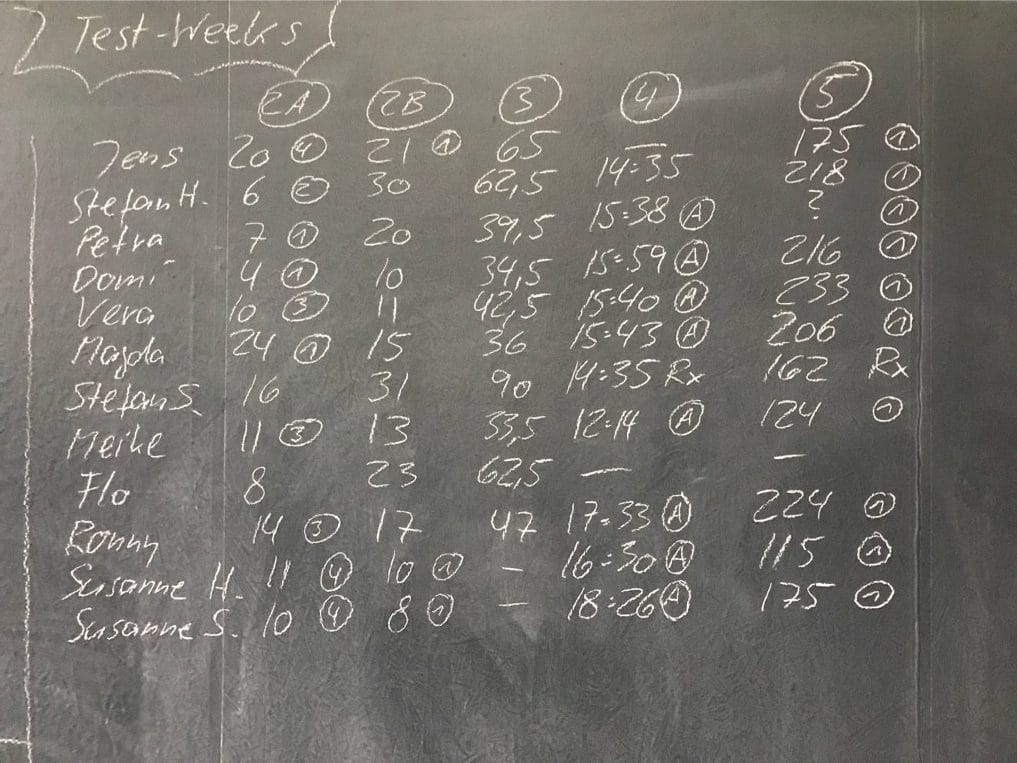 Test-Weeks
2A 2B 3 4 5
Jens 20 ④ 21 ① 65 — 175 ①
Stefan H. 6 ② 30 62,5 14:35 218 ①
Petra 7 ① 20 39,5 15:38 Ⓐ ? ①
Domi 4 ① 10 34,5 15:59 Ⓐ 216 ①
Vera 10 ③ 11 42,5 15:40 Ⓐ 233 ①
Magda 24 ① 15 36 15:43 Ⓐ 206 ①
Stefan S. 16 31 90 14:35 Rx 162 Rx
Meike 11 ③ 13 33,5 12:14 Ⓐ 124 ①
Flo 8 23 62,5 — —
Ronny 14 ③ 17 47 17:33 Ⓐ 224 ①
Susanne H. 11 ④ 10 ① — 16:30 Ⓐ 115 ①
Susanne S. 10 ④ 8 ① — 18:26 Ⓐ 175 ①